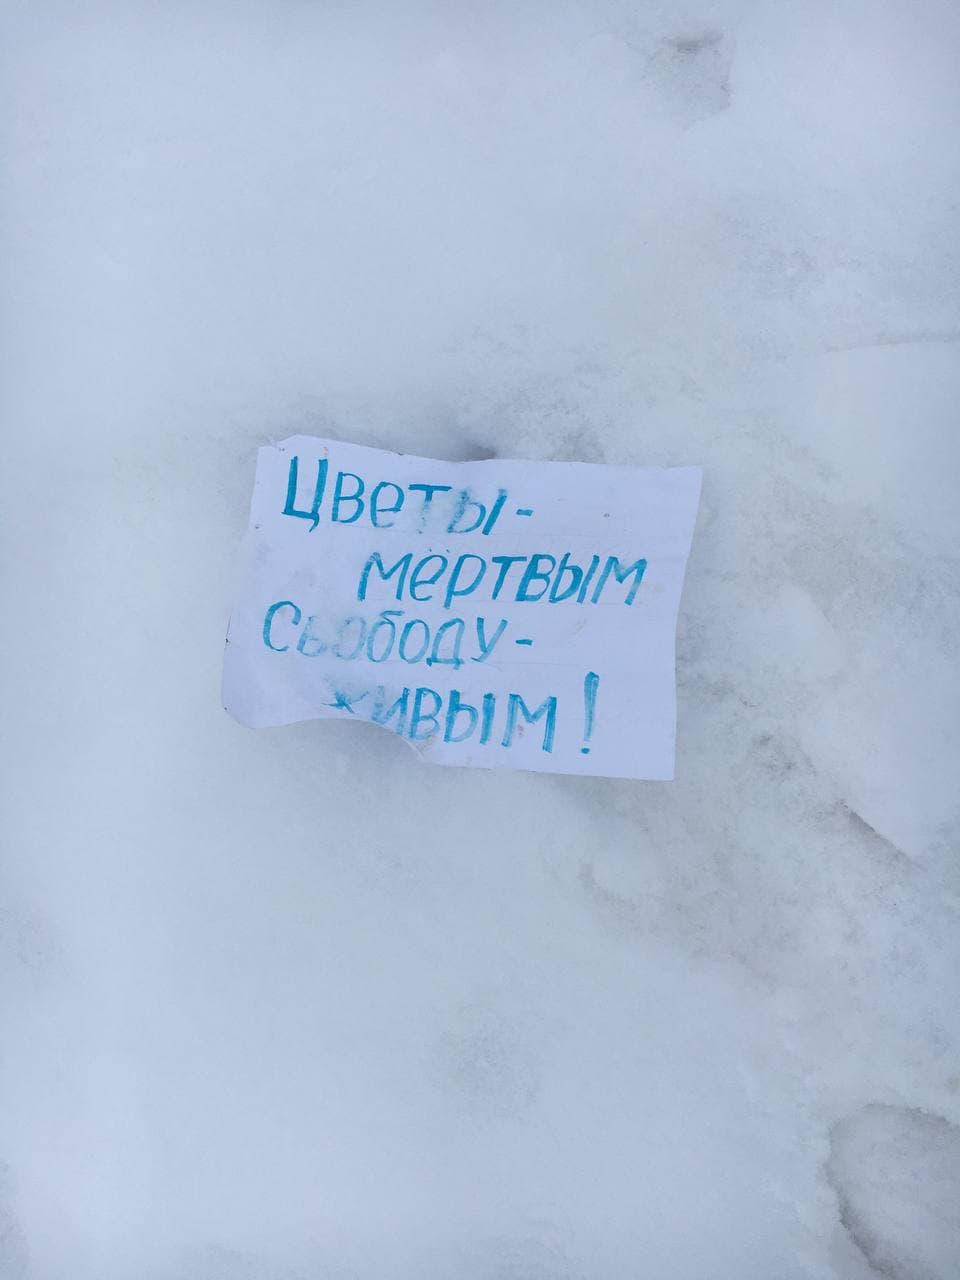 Цветы -
мёртвым
Свободу -
живым!